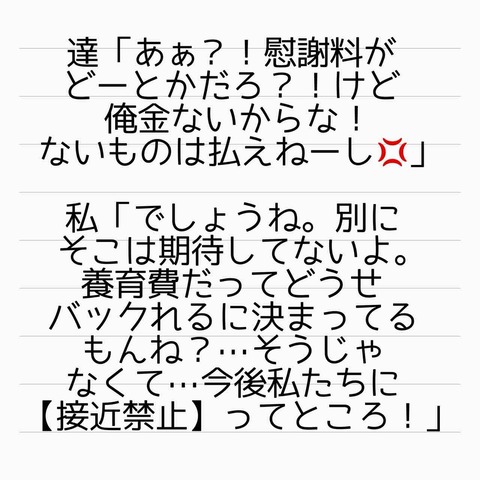 達「あぁ？！慰謝料が
どーとかだろ？！けど
俺金ないからな！
ないものは払えねーし💢」
私「でしょうね。別に
そこは期待してないよ。
養育費だってどうせ
バックれるに決まってる
もんね？…そうじゃ
なくて…今後私たちに
【接近禁止】ってところ！」